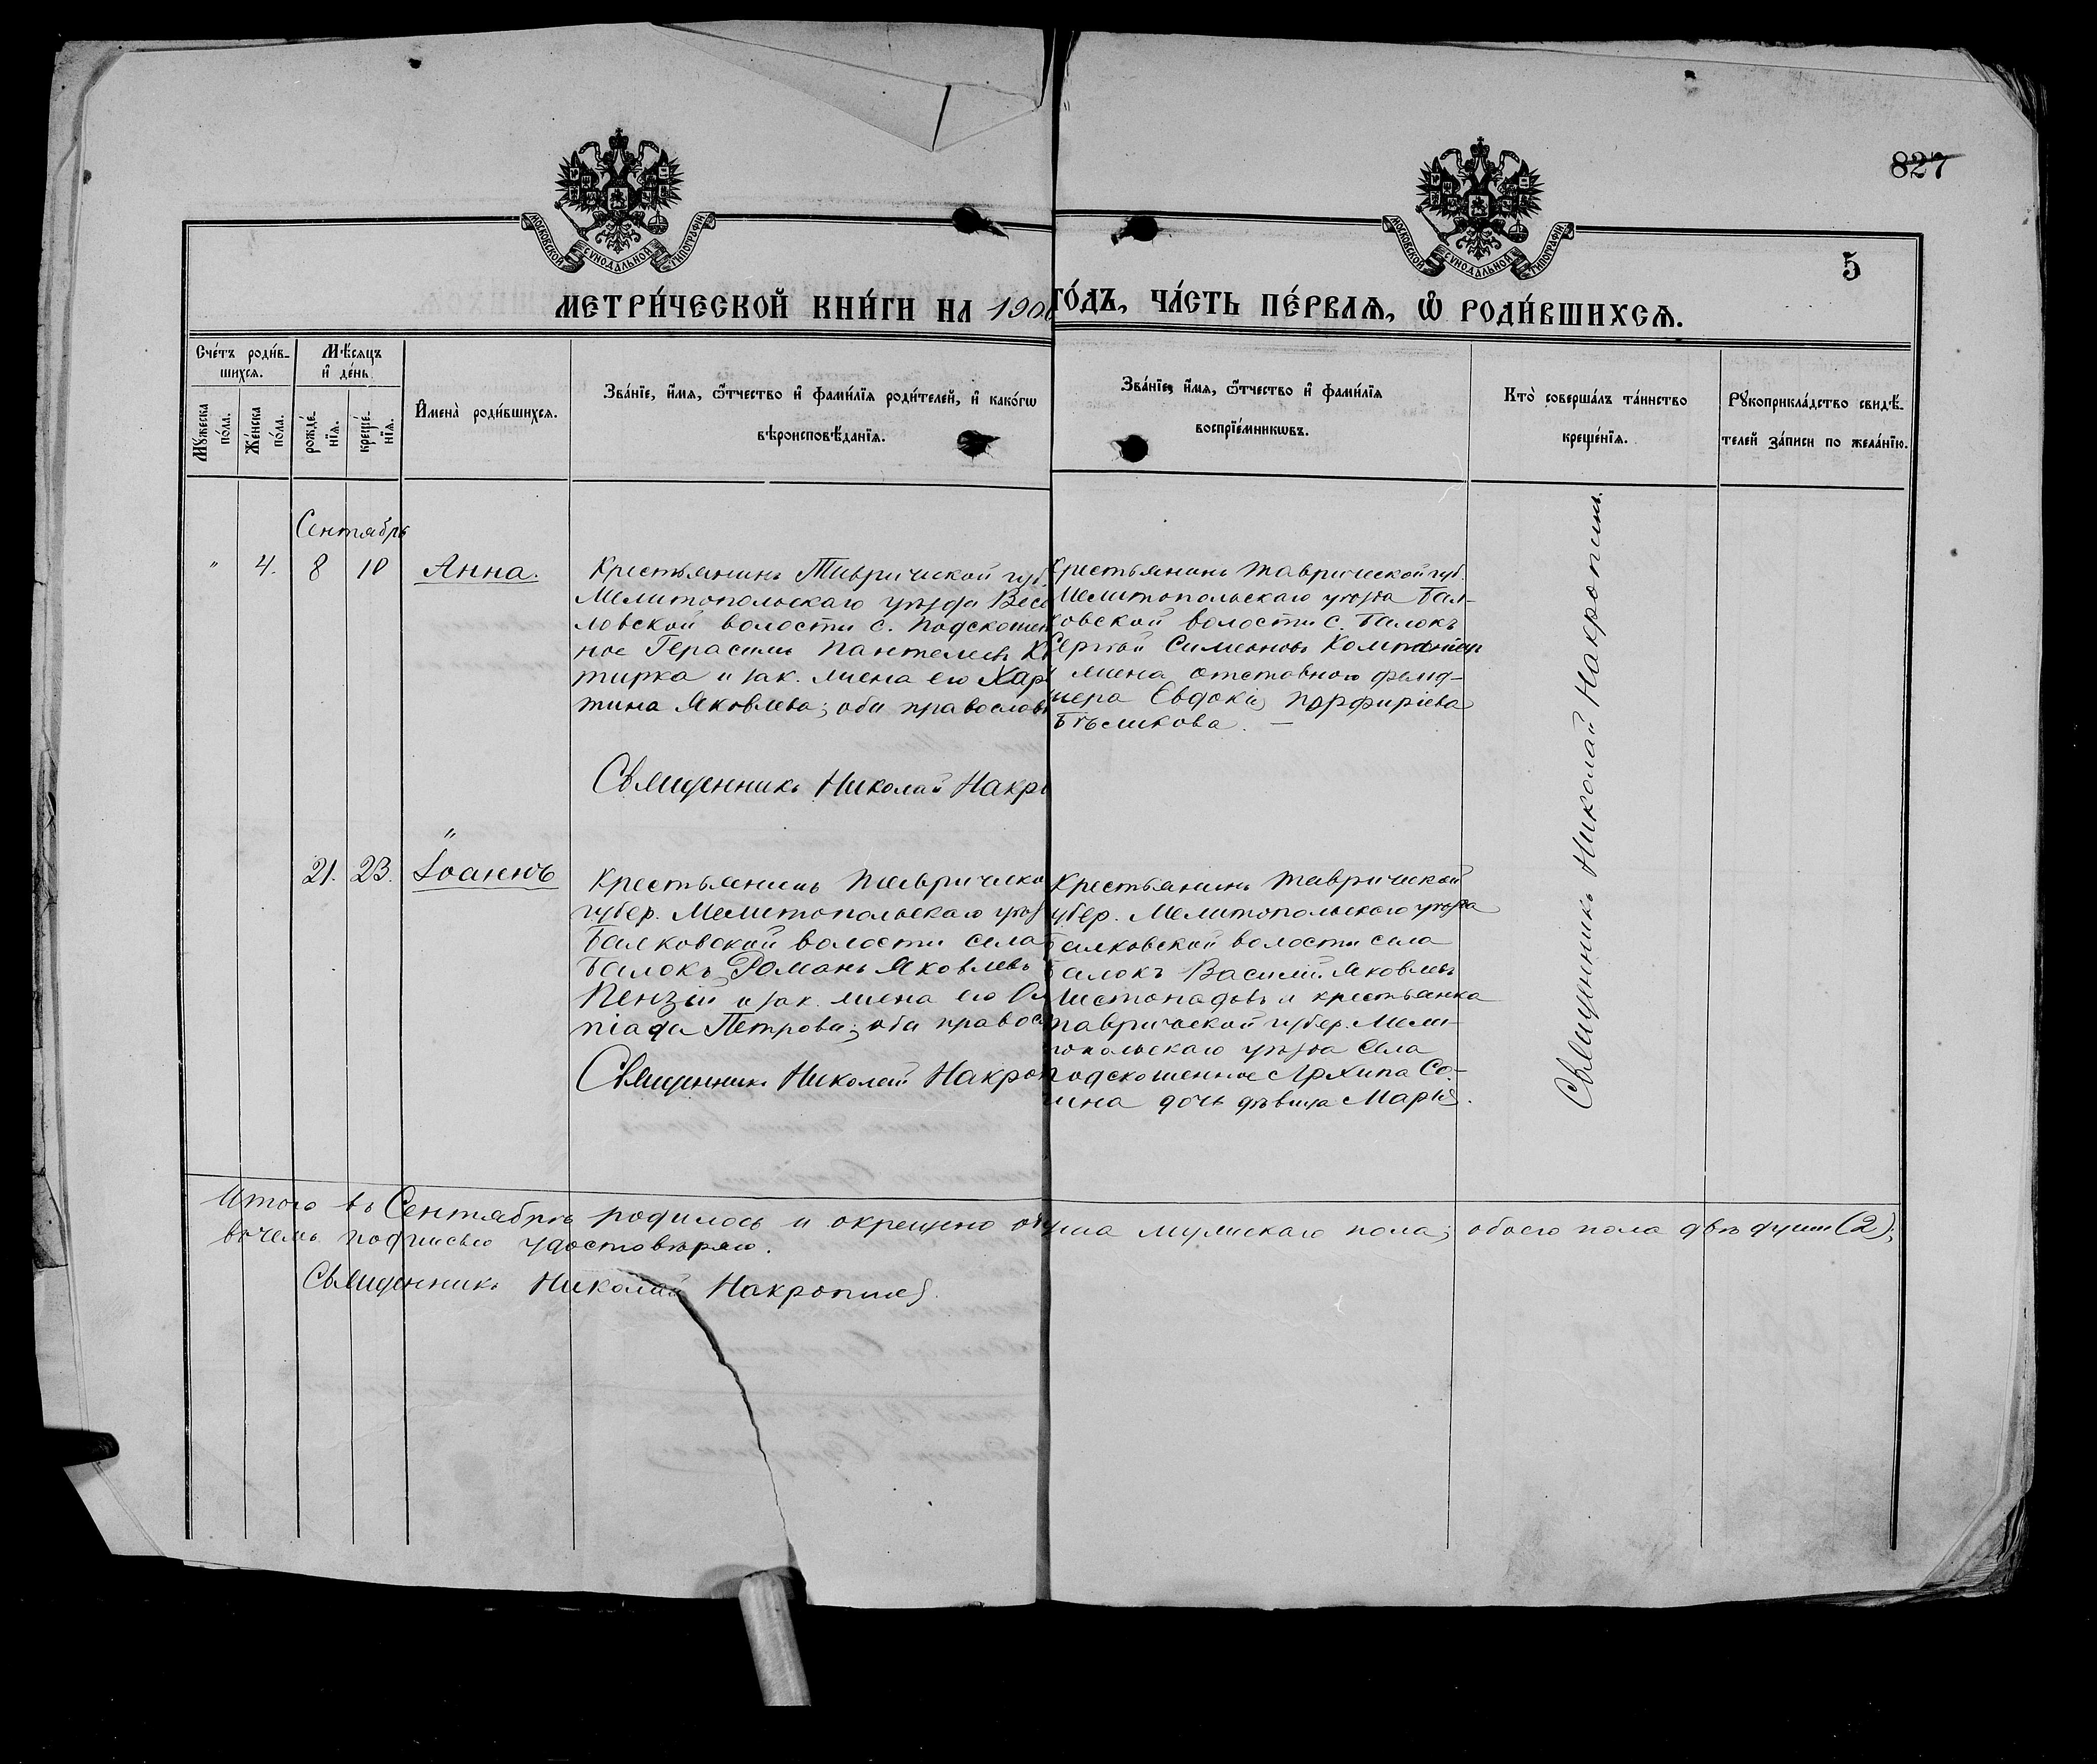 827
МОСКОВСКОЙ СУНОДАЛЬНОЙ ТИПОГРАФІИ
МОСКОВСКОЙ СУНОДАЛЬНОЙ ТИПОГРАФІИ
5
МЕТРИ́ЧЕСКОЙ КНИ́ГИ НА 190
ГО́ДЪ, ЧА́СТЬ ПЕ́РВАѦ, Ѡ РОДИ́ВШИХСѦ.
Сче́тъ роди́в-
шихсѧ.
Мѹжеска по́ла.
Же́нска по́ла.
Мѣ́сѧцъ
и҆ де́нь.
рожде́-
нїѧ.
креще́-
нїѧ.
И҆мена̀ роди́вшихсѧ.
Зва́нїе, и҆́мѧ, ѻ҆́тчество и҆ фами́лїѧ роди́телей, и҆ како́гѡ
вѣроисповѣ́данїѧ.
Зва́нїе, и҆́мѧ, ѻ҆́тчество и҆ фами́лїѧ
воспрїе́мникѡвъ.
Кто̀ соверша́лъ та́инство
креще́нїѧ.
Рѹкоприкла́дство свидѣ́-
телей за́писи по жела́нїю.
Сентябрь
" 4. 8 10 Анна.
Крестьянинъ Таврической губ.
Мелитопольскаго уѣзда Весе
ловской волости с. Подскошен
ное Герасимъ Пантелеевъ
тирка и зак. жена его Хар
тина Яковлева; оба православ
Священникъ Николай Накро
Крестьянинъ Таврической губ.
Мелитопольскаго уѣзда Бал-
ковской волости с. Балокъ
Сергѣй Симеоновъ Компаніец
и жена отставного фельд-
шера Евдокія Порфиріева
Бѣликова. —
"
21. 23. Іоаннъ
Крестьянинъ Тавричеко
губер. Мелитопольскаго уѣз
Балковской волости села
Балокъ Романъ Яковлевъ
Пензій и зак. жена его Ол
піада Петрова; оба правос
Священникъ Николай Накроп
Крестьянинъ Таврической
губер. Мелитопольского уѣзда
Балковской волости села
Балокъ Василій Яковлевъ
Листопадовъ и крестьянка
Таврической губер. Мели-
топольскаго уѣзда села
Подскошенное Архипа Со-
дочь дѣвица Марія.
Священникъ Николай Накропинъ
Итого въ Сентябрѣ родилось и окрещено мужскаго пола; обоего пола двѣ души (2);
вчемъ подписью удостовѣряю.
Священникъ Николай Накропинъ